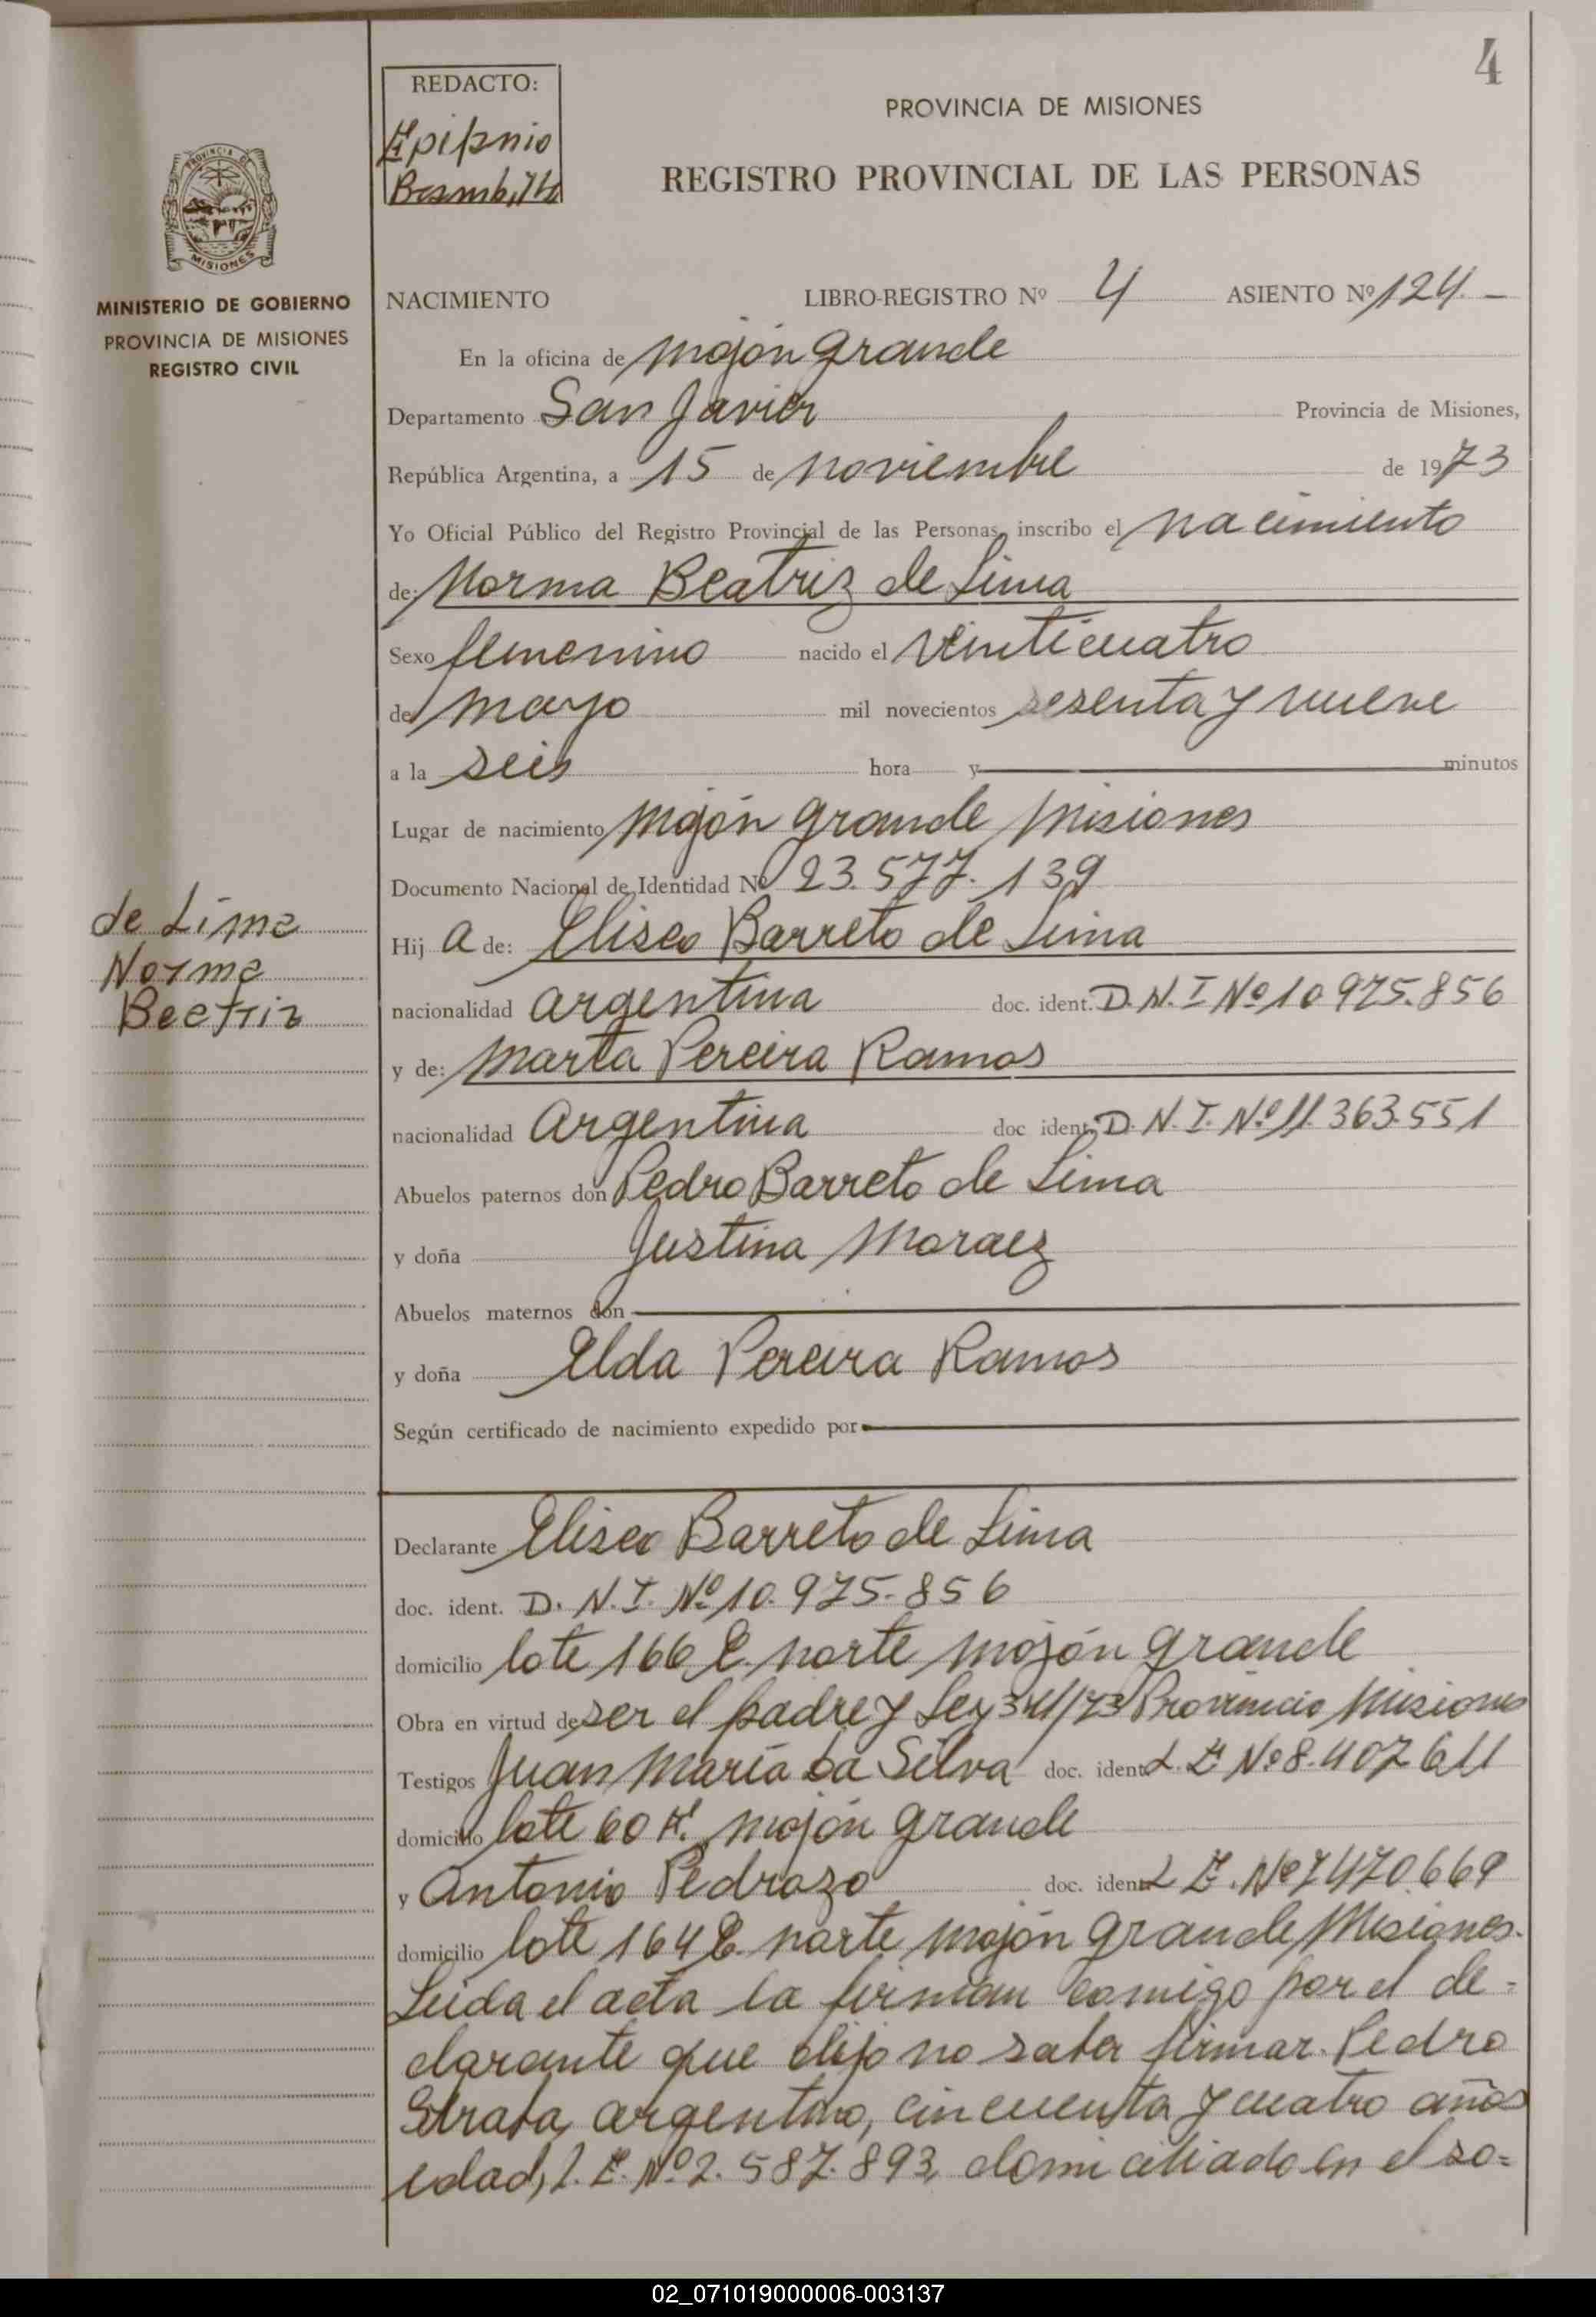 4
REDACTO:
PROVINCIA DE MISIONES
REGISTRO PROVINCIAL DE LAS PERSONAS
PROVINCIA DE
MISIONES
MINISTERIO DE GOBIERNO
PROVINCIA DE MISIONES
REGISTRO CIVIL
NACIMIENTO LIBRO-REGISTRO Nº 4 ASIENTO Nº 124.—
En la oficina de Mojón Grande
Departamento San Javier Provincia de Misiones,
República Argentina, a 15 de noviembre de 1973
Yo Oficial Público del Registro Provincial de las Personas, inscribo el nacimiento
de: Norma Beatriz de Lima
Sexo femenino nacido el veinticuatro
de mayo mil novecientos sesenta y nueve
a la seis hora y minutos
Lugar de nacimiento Mojón Grande Misiones
Documento Nacional de Identidad Nº 23.577.139
de Lima
Norma
Beatriz
Hij a de: Eliseo Barreto de Lima
nacionalidad argentina doc. ident. D.N.I Nº 10 975.856
y de: Marta Pereira Ramos
nacionalidad argentina doc ident. D.N.I. Nº 11.363.551
Abuelos paternos don Pedro Barreto de Lima
y doña Justina Moraez
Abuelos maternos don
y doña Elda Pereira Ramos
Según certificado de nacimiento expedido por
Declarante Eliseo Barreto de Lima
doc. ident. D.N.I. Nº 10.975.856
domicilio lote 166 C. norte Mojón Grande
Obra en virtud de ser el padre y Ley 341/73 Provincia Misiones
Testigos Juan María Da Silva doc. ident. L.E Nº 8.407611
domicilio lote 60 Mojón Grande
y Antonio Pedrozo doc. ident. L E. Nº 7470.669
domicilio lote 164 C. norte Mojón Grande, Misiones.
Leida el acta la firman comigo por el de=
clarante que dijo no saber firmar. Pedro
argentino, cincuenta y cuatro años
edad, L.E. Nº 2.587.893, domiciliado en el so=
02_071019000006-003137